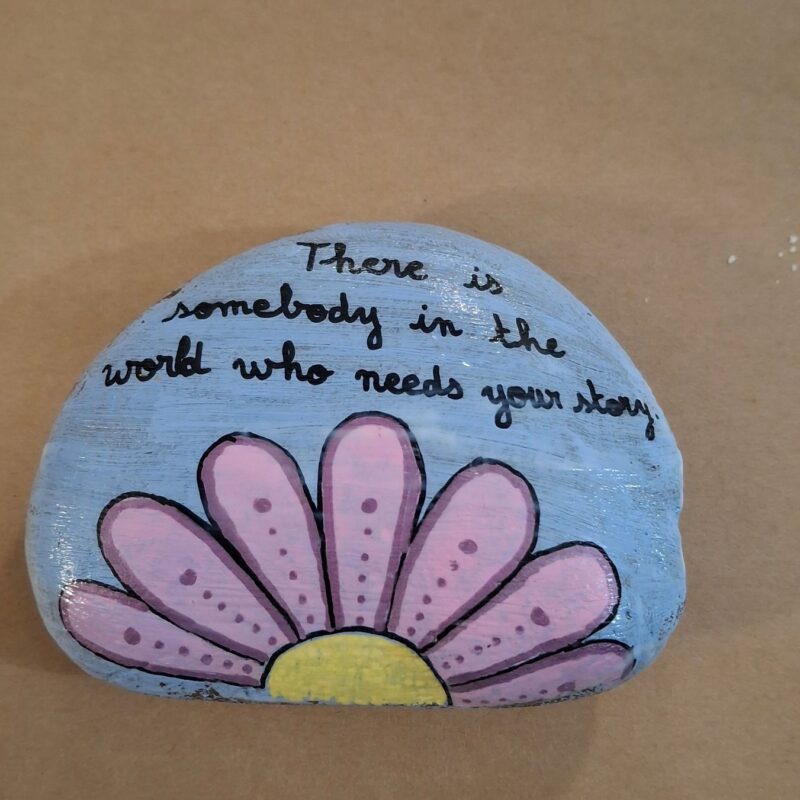 There is
somebody in the
world who needs your story.